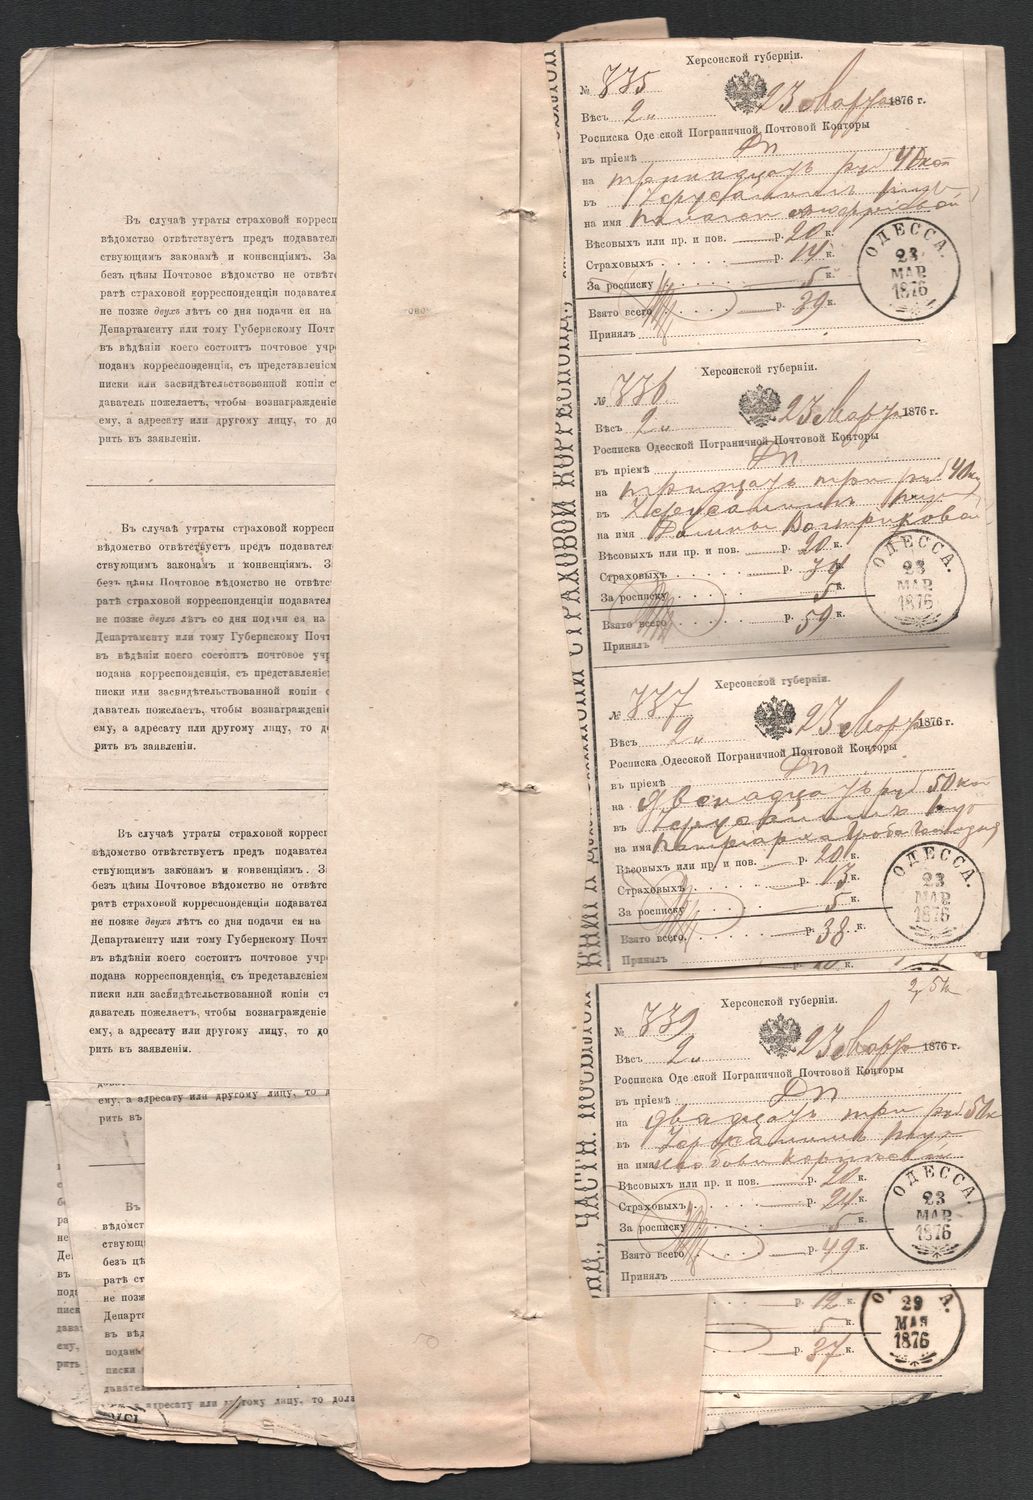 Въ случаѣ утраты страховой корресп
вѣдомство отвѣтствуетъ предъ подавател
ствующимъ законамъ и конвенціямъ. За
безъ цѣны Почтовое вѣдомство не отвѣтс
ратѣ страховой корреспонденціи подавател
не позже двухъ лѣтъ со дня подачи ея на
Департаменту или тому Губернскому Почт
въ вѣдѣніи коего состоитъ почтовое учр
подана корреспонденція, съ представленіем
писки или засвидѣтельствованной копіи с
даватель пожелаетъ, чтобы вознагражденіе
ему, а адресату или другому лицу, то до
рить въ заявленіи.
Въ случаѣ утраты страховой корресп
вѣдомство отвѣтствуетъ предъ подавател
ствующимъ законамъ и конвенціямъ. З
безъ цѣны Почтовое вѣдомство не отвѣтс
ратѣ страховой корреспонденціи подавател
не позже двухъ лѣтъ со дня подачи ея на
Департаменту или тому Губернскому Почт
въ вѣдѣніи коего состоитъ почтовое учр
подана корреспонденція, съ представленіе
писки или засвидѣтельствованной копіи с
даватель пожелаетъ, чтобы вознагражденіе
ему, а адресату или другому лицу, то д
рить въ заявленіи.
Въ случаѣ утраты страховой корресп
вѣдомство отвѣтствуетъ предъ подавател
ствующимъ законамъ и конвенціямъ. З
безъ цѣны Почтовое вѣдомство не отвѣтс
ратѣ страховой корреспонденціи подавател
не позже двухъ лѣтъ со дня подачи ея на
Департаменту или тому Губернскому Почт
въ вѣдѣніи коего состоитъ почтовое учр
подана корреспонденція, съ представленіем
писки или засвидѣтельствованной копіи ст
даватель пожелаетъ, чтобы вознагражденіе
ему, а адресату или другому лицу, то до
рить въ заявленіи.
ему, а адресату или другому лицу, то
рить въ
Въ
вѣдомст
ствующ
безъ цѣ
ратѣ ст
не позж
Департа
въ вѣд
подан
писки
давател
адресату или другому лицу, то долж
Херсонской губерніи.
№ 335
Вѣсъ 2 23 Марта 1876 г.
Росписка Одесской Пограничной Почтовой Конторы
въ пріемѣ Дп
на тринадцать руб 40 коп
въ Іерусалимъ
на имя
Вѣсовыхъ или пр. и пов. р. 20 к.
Страховыхъ р. 14 к.
За росписку 5 к.
Взято всего р. 39 к.
Принялъ
ОДЕССА.
23
МАР.
1876
Херсонской губерніи.
№ 336
Вѣсъ 2 23 Марта 1876 г.
Росписка Одесской Пограничной Почтовой Конторы
въ пріемѣ Дп
на тридцать три руб 40 к
въ Іерусалимъ
на имя Вотриковой
Вѣсовыхъ или пр. и пов. р. 20 к.
Страховыхъ р. 34 к.
За росписку 5 к.
Взято всего р. 59 к.
Принялъ
ОДЕССА.
23
МАР.
1876
Херсонской губерніи.
№ 337
Вѣсъ 2 23 Марта 1876 г.
Росписка Одесской Пограничной Почтовой Конторы
въ пріемѣ Дп
на двенадцать руб 50 коп
въ Іерусалимъ
на имя Патріарха Гроба Господня
Вѣсовыхъ или пр. и пов. р. 20 к.
Страховыхъ р. 13 к.
За росписку 5 к.
Взято всего р. 38 к.
Принялъ
ОДЕССА.
23
МАР.
1876
Херсонской губерніи.
№ 339
Вѣсъ 2 23 Марта 1876 г.
Росписка Одесской Пограничной Почтовой Конторы
въ пріемѣ Дп
на двадцать три руб 50 к
въ Іерусалимъ
на имя Любови
Вѣсовыхъ или пр. и пов. р. 20 к.
Страховыхъ р. 24 к.
За росписку 5 к.
Взято всего р. 49 к.
Принялъ
ОДЕССА.
23
МАР.
1876
р. 12 к.
5 к.
р. 37 к.
29
МАЯ
1876